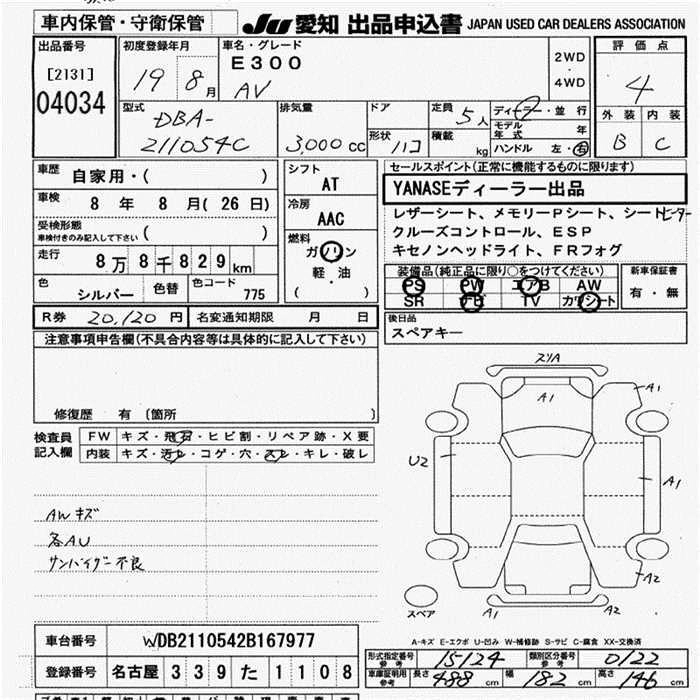 車内保管・守衛保管
JU 愛知 出品申込書 JAPAN USED CAR DEALERS ASSOCIATION
出品番号
[2131]
04034
初度登録年月
19 8月
車名・グレード
E300
AV
2WD
・
4WD
評価点
4
外装 内装
B C
型式
DBA-
211054C
排気量
3,000 cc
ドア
形状 ハコ
定員 5人
積載 kg
ディーラー・並行
モデル年式 年
ハンドル 左・右
車歴 自家用・( )
車検 8年 8月( 26日)
受検形態
車検付きのみ記入して下さい ( )
走行 8万8千829km
色 シルバー 色替 色コード 775
シフト
AT
冷房
AAC
燃料
ガソリン
軽・油
( )
セールスポイント(正常に機能するものに限ります)
YANASEディーラー出品
レザーシート、メモリーPシート、シートヒーター
クルーズコントロール、ESP
キセノンヘッドライト、FRフォグ
装備品(純正品に限り○をつけてください)
PS PW エアB AW
SR ナビ TV カワシート
新車保証書
有・無
R券 20,120円 名変通知期限 月 日
後日品
スペアキー
注意事項申告欄(不具合内容等は具体的に記入して下さい)
修復歴 有 〔箇所 〕
検査員
記入欄
FW キズ・飛石・ヒビ割・リペア跡・X要
内装 キズ・汚レ・コゲ・穴・スレ・キレ・破レ
AWキズ
各AU
サンバイザー不良
スリA
A1
A1
U2
A1
A2
A1
A2
スペア
A-キズ E-エクボ U-凹み W-補修跡 S-サビ C-腐食 XX-交換済
車台番号 WDB2110542B167977
登録番号 名古屋 339 た 1108
形式指定番号
参考 15124
類別区分番号
参考 0122
車庫証明用
参考 長さ 488cm 幅 182cm 高さ 146cm